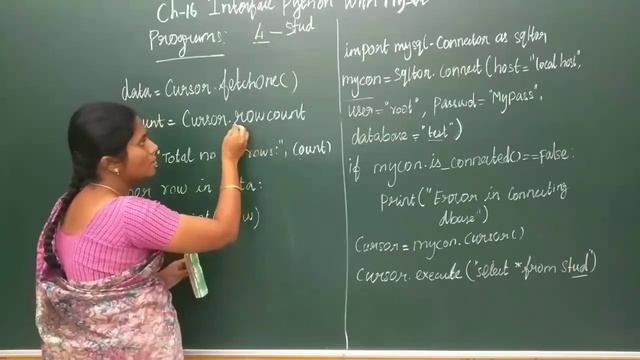 Ch-16 Interface Python with
Programs: 4 - Stud
data = Cursor.fetchone()
= Cursor.rowcount
"Total no rows:", Count)
row in :
)
import mysql-Connector as sqltor
mycon = sqltor.connect(host="localhost",
user="root", Passwd="MyPass",
database="test")
if mycon.is_connected()==False:
Print("Error in Connecting
dbase")
Cursor = mycon.Cursor()
Cursor.execute("select * from Stud")